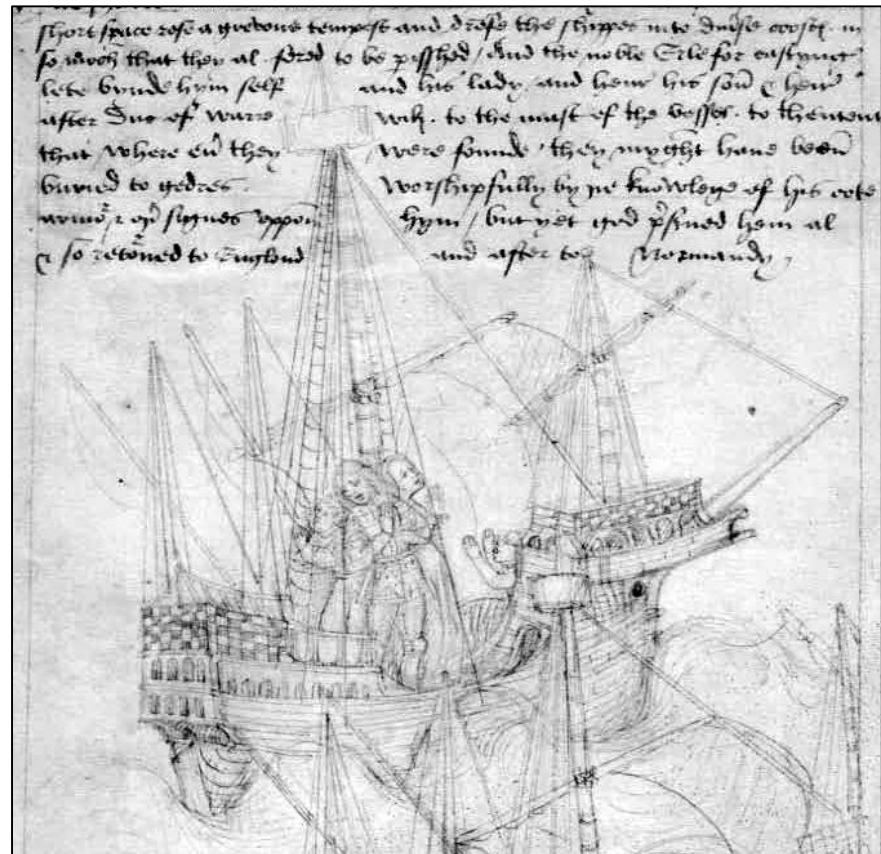 short space rose a grevous tempest and drofe the shippes into diuse coostꝭ in
so moch that they al fered to be pisshed / And the noble Erle for castyng
lete bynde hym self and his lady and henr̛ his son̄ & heir̛
after Duc of warre wik̵ . to the mast of the vessel . to thentent
that where eū they were founde / they myght haue been̄
buried to gedres . worshipfully by ye knowlege of his cote
armor̛ & oy̛ signes vppon hym / but yet god p̛s̛ued hem al
& so retorned to Englond and after to Normandy ,